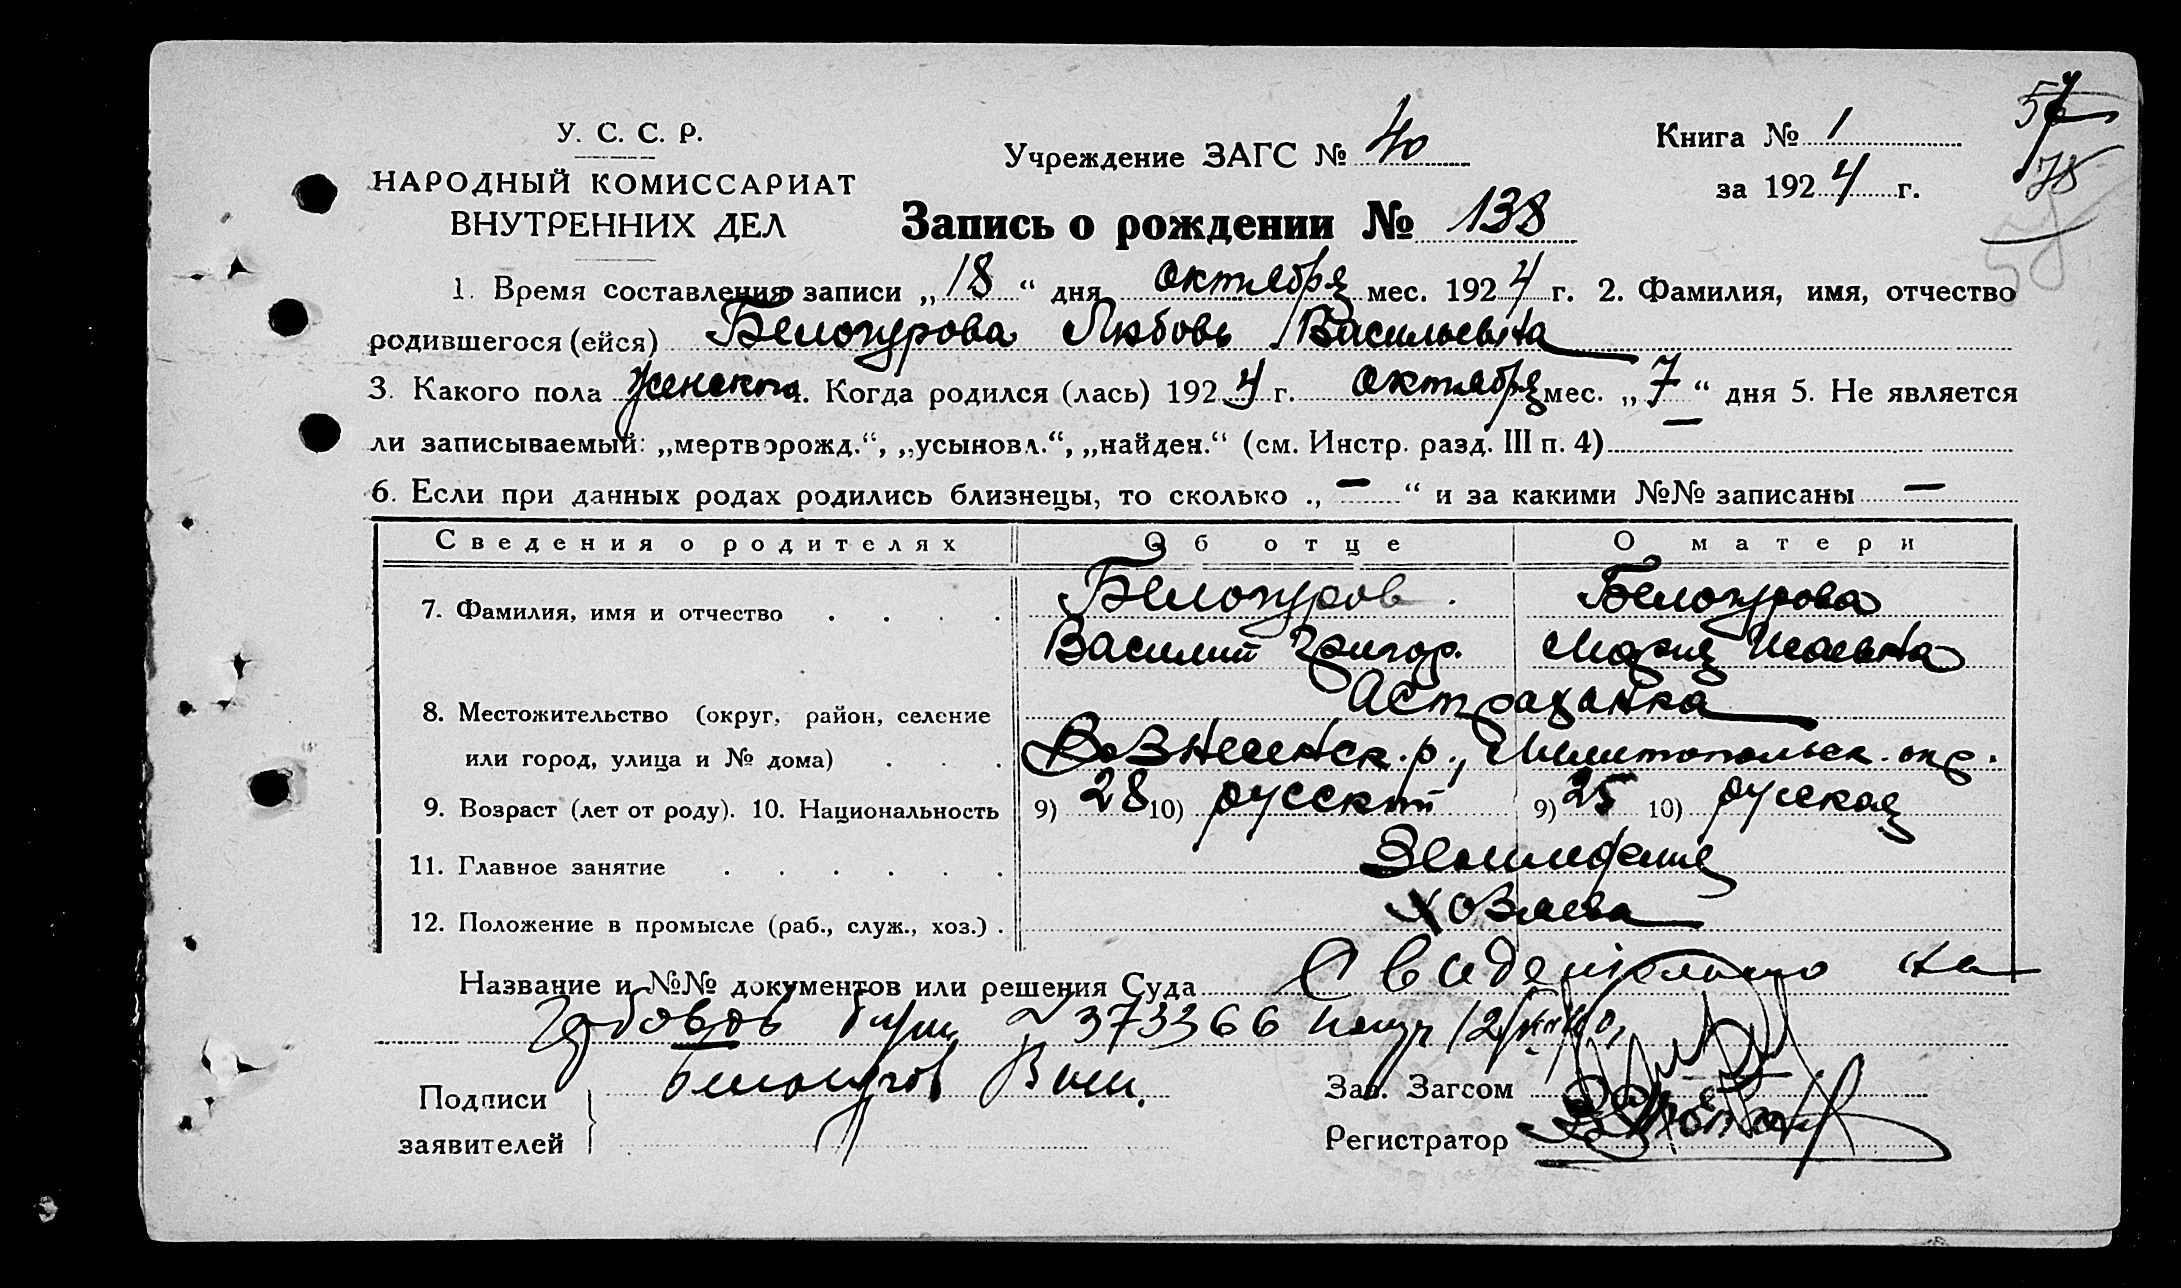 57
78
57
У. С. С. Р.
НАРОДНЫЙ КОМИССАРИАТ
ВНУТРЕННИХ ДЕЛ
Учреждение ЗАГС № 40
Книга № 1
за 1924 г.
Запись о рождении № 138
1. Время составления записи „18“ дня октября мес. 1924 г. 2. Фамилия, имя, отчество
родившегося (ейся) Белогурова Любовь Васильевна
3. Какого пола женского 4. Когда родился (лась) 1924 г. октября мес. „7“ дня 5. Не является
ли записываемый: „мертворожд.“, „усыновл.“, „найден.“ (см. Инстр. разд. III п. 4) —
6. Если при данных родах родились близнецы, то сколько „—“ и за какими №№ записаны —
Сведения о родителях Об отце О матери
7. Фамилия, имя и отчество Белогуров Белогурова
Василий Григор. Мария Исаевна
8. Местожительство (округ, район, селение Астраханка
или город, улица и № дома) Вознесенск. р., Мелитопольск. окр.
9. Возраст (лет от роду). 10. Национальность 9) 28 10) русский 9) 25 10) русская
11. Главное занятие Земледелие
12. Положение в промысле (раб., служ., хоз.) Хозяева
Название и №№ документов или решения Суда Свидетельство на
373366
Подписи Белогуров Васи. Зав. Загсом
заявителей Регистратор